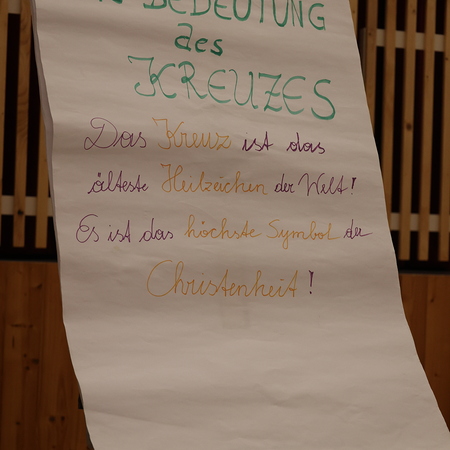 BEDEUTUNG
des
KREUZES
Das Kreuz ist das
älteste Heilzeichen der Welt!
Es ist das höchste Symbol der
Christenheit!